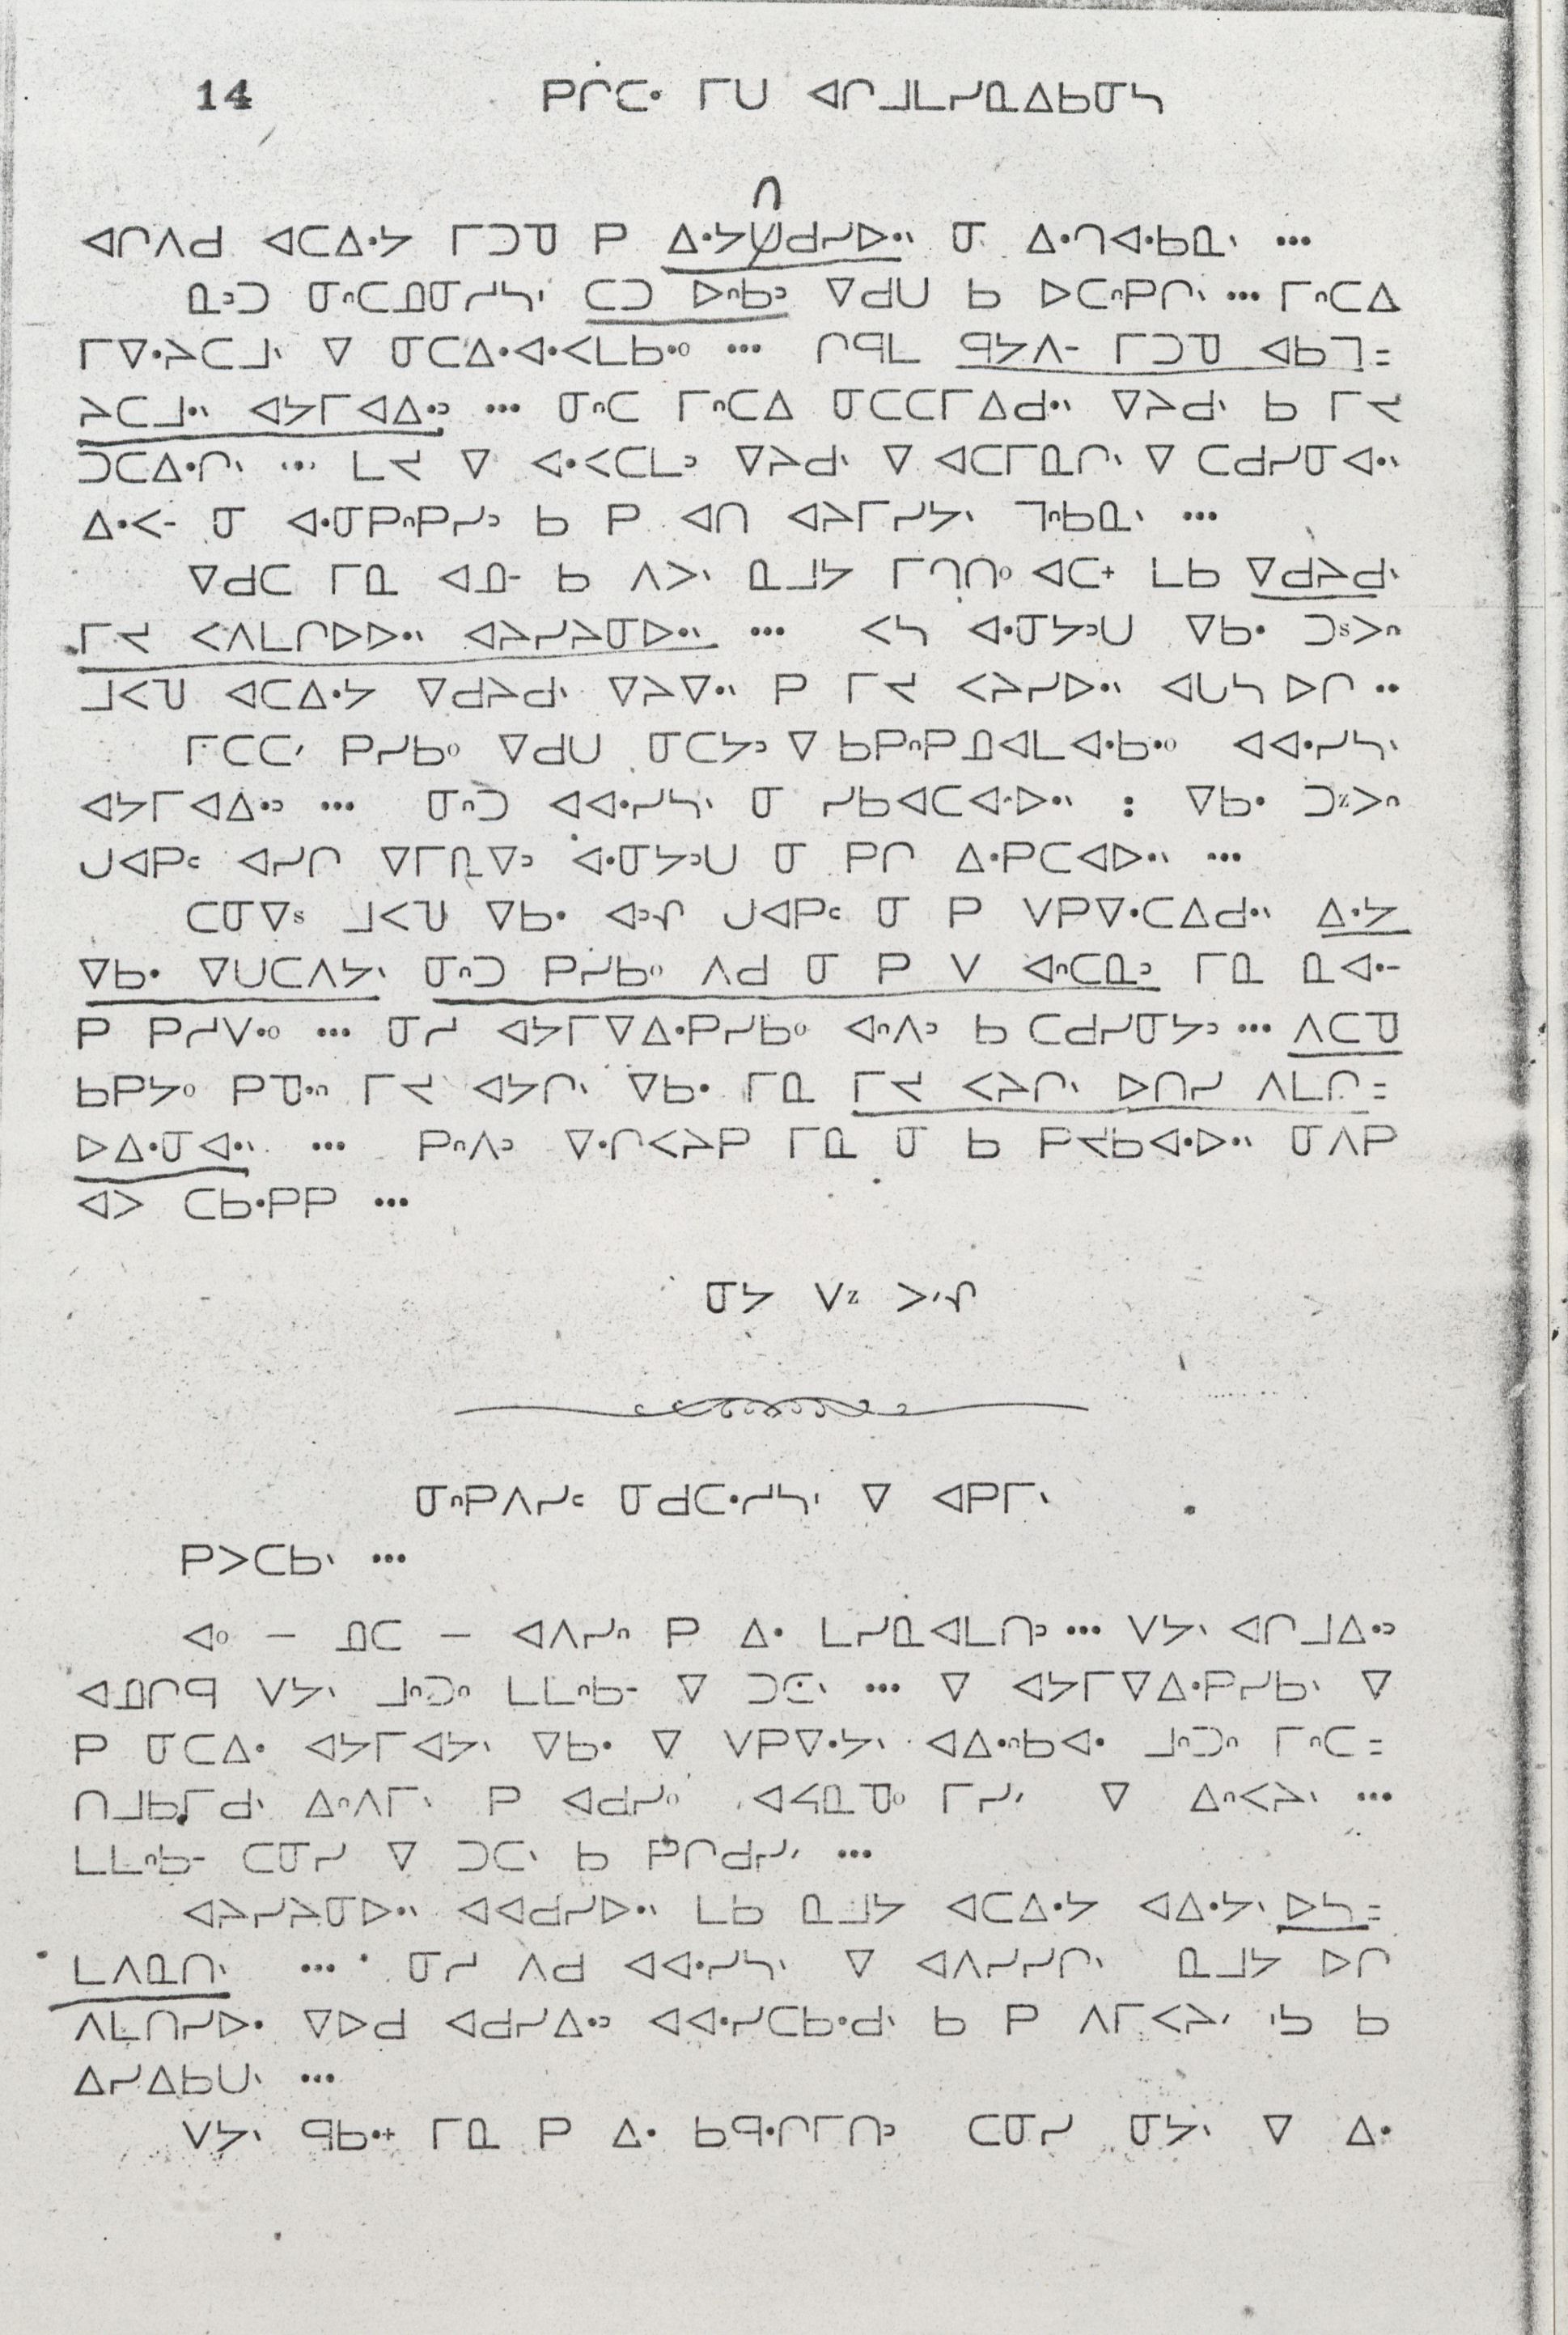 14 ᑭᒌᑕᐧ ᒥᑌ ᐊᒋᒧᒪᓯᓇᐃᑲᓂᓴ
ᐊᒋᐱᑯ ᐊᑕᐃᐧᔭ ᒥᑐᓀ ᑭ ᐃᐧᔭᑎᑯᓯᐅᐧᐠ ᓂ ᐃᐧᒉᐊᐧᑲᓇᐠ ...
ᓇᐣᑐ ᓂᐢᑕᓄᓂᓯᓴᐠ ᑕᑐ ᐅᐢᑲᐣ ᐁᑯᑌ ᑲ ᐅᑕᐢᑭᒋᐠ ... ᒥᐢᑕᐃ
ᒥᐁᐧᔨᑕᒧᐠ ᐁ ᓂᑕᐃᐧᐊᐧᐸᒪᑲᐧᐤ ... ᒋᑫᒪ ᑫᔭᐱᐨ ᒥᑐᓀ ᐊᑲᒣ=
ᔨᑕᒧᐧᐠ ᐊᔭᒥᐊᐃᐧᐣ ... ᓂᐢᑕ ᒥᐢᑕᐃ ᓂᑕᑕᒥᐃᑯᐧᐠ ᐁᔨᑯᐠ ᑲ ᒥᔪ
ᑐᑕᐃᐧᒋᐠ ... ᒪᔪ ᐁ ᐊᐧᐸᑕᒪᐣ ᐁᔨᑯᐠ ᐁ ᐊᑕᒥᓇᒋᐠ ᐁ ᑕᑯᓯᓂᐊᐧᐠ
ᐃᐧᐸᐨ ᓂ ᐊᐧᓂᑭᐢᑭᓯᐣ ᑲ ᑭ ᐊᑎ ᐊᔨᒥᓯᔭᐠ ᒣᐢᑲᓇᐠ ...
ᐁᑯᑕ ᒥᓇ ᐊᓄᐨ ᑲ ᐱᐳᐠ ᓇᒧᔭ ᒥᒉᑎᐤ ᐊᑕᐩ ᒪᑲ ᐁᑯᔨᑯᐠ
ᒥᔪ ᐸᐱᒪᒋᐅᐅᐧᐠ ᐊᔨᓯᔨᓂᐅᐧᐠ ... ᐸᓴ ᐊᐧᓂᔭᐣᑌ ᐁᑲᐧ ᑐᐢᐳᐢ
ᒧᐸᑊ ᐊᑕᐃᐧᔭ ᐁᑯᔨᑯᐠ ᐁᔨᐁᐧᐠ ᑭ ᒥᔪ ᐸᔨᓯᐅᐧᐠ ᐊᑌᓴ ᐅᒋ ..
ᒥᑕᑕᐟ ᑭᓯᑲᐤ ᐁᑯᑌ ᓂᑕᔭᐣ ᐁ ᑲᑭᐢᑭᓄᐊᒪᐊᐧᑲᐧᐤ ᐊᐊᐧᓯᓴᐠ
ᐊᔭᒥᐊᐃᐧᐣ ... ᓂᐢᑐ ᐊᐊᐧᓯᓴᐠ ᓂ ᓯᑲᐊᑕᐊᐧᐅᐧᐠ : ᐁᑲᐧ ᑐᶻᐳᐢ
ᒍᐊᑭᑦ ᐊᓯᒋ ᐁᒥᓖᐁᐣ ᐊᐧᓂᔭᐣᑌ ᓂ ᑭᒋ ᐃᐧᑭᑕᐊᐅᐧᐠ ...
ᑕᓂᐁˢ ᒧᐸᑊ ᐁᑲᐧ ᐊᐣᕒ ᒍᐊᑭᑦ ᓂ ᑭ ᐯᑭᐁᐧᑕᐃᑯᐧᐠ ᐃᐧᔭ
ᐁᑲᐧ ᐁᑌᑕᐱᔭᐠ ᓂᐢᑐ ᑭᓯᑲᐤ ᐱᑯ ᓂ ᑭ ᐯ ᐊᐢᑕᓇᐣ ᒥᓇ ᓇᐊᐧᐨ
ᑭ ᑭᓯᐯᐧᐤ ... ᓂᓯ ᐊᔭᒥᐁᐃᐧᑭᓯᑲᐤ ᐊᐢᐱᐣ ᑲ ᑕᑯᓯᓂᔭᐣ ... ᐱᑕᓀ
ᑲᑭᔭᐤ ᑭᓀᐧᐢ ᒥᔪ ᐊᔭᒋᐠ ᐁᑲᐧ ᒥᓇ ᒥᔪ ᐸᔨᒋᐠ ᐅᑎᓯ ᐱᒪᒋ=
ᐅᐃᐧᓂᐊᐧᐠ ... ᑭᐢᐱᐣ ᐁᐧᒋᐸᔨᑭ ᒥᓇ ᓂ ᑲ ᑭᐪᑲᐊᐧᐅᐧᐠ ᓂᐱᑭ
ᐊᐳ ᑕᑲᐧᑭᑭ ...
ᓂᔭ ᐯᶻ ᐳᐟᕒ
ᓂᐢᑭᐱᓯᑦ ᓂᑯᑕᐧᓯᓴᐠ ᐁ ᐊᑭᒥᐠ
ᑭᐳᑕᑲᐠ ...
ᐊᐤ — ᓄᑕ — ᐊᐱᓯᐢ ᑭ ᐃᐧ ᒪᓯᓇᐊᒪᑎᐣ ... ᐯᔭᐠ ᐊᒋᒧᐃᐧᐣ
ᐊᓄᒋᑫ ᐯᔭᐠ ᒧᐢᑐᐢ ᒪᒪᐢᑲᐨ ᐁ ᑐᑕᐠ ... ᐁ ᐊᔭᒥᐁᐃᐧᑭᓯᑲᐠ ᐁ
ᑭ ᓂᑕᐃᐧ ᐊᔭᒥᐊᔭᐠ ᐁᑲᐧ ᐁ ᐯᑭᐁᐧᔭᐠ ᐊᐃᐧᐢᑲᐊᐧ ᒧᐢᑐᐢ ᒥᐢᑕ=
ᑎᒧᑲᒥᑯᐠ ᐃᐢᐱᒥᐠ ᑭ ᐊᑯᓯᐤ ᐊᔦᓇᓀᐤ ᒥᓯᐟ ᐁ ᐃᐢᐸᔨᐠ ...
ᒪᒪᐢᑲᐨ ᑕᓂᓯ ᐁ ᑐᑕᐠ ᑲ ᑭᒋᑯᓯᐟ ...
ᐊᔨᓯᔨᓂᐅᐧᐠ ᐊᐊᑯᓯᐅᐧᐠ ᒪᑲ ᓇᒧᔭ ᐊᑕᐃᐧᔭ ᐊᐃᐧᔭᐠ ᐅᓴ=
ᒪᐱᓇᑎᐠ ... ᓂᓯ ᐱᑯ ᐊᐊᐧᓯᓴᐠ ᐁ ᐊᐱᓯᓯᒋᐠ ᓇᒧᔭ ᐅᒋ
ᐱᒪᑎᓯᐅᐧ ᐁᐅᑯ ᐊᑯᓯᐃᐧᐣ ᐊᐊᐧᓯᑕᑲᐧᑯᐠ ᑲ ᑭ ᐱᒥᐸᔨᐟ ᑲ
ᐃᓯᐃᑲᑌᐠ ...
ᐯᔭᐠ ᑫᑲᐧᐩ ᒥᓇ ᑭ ᐃᐧ ᑲᑫᐧᒋᒥᑎᐣ ᑕᓂᓯ ᓂᔭᐠ ᐁ ᐃᐧ